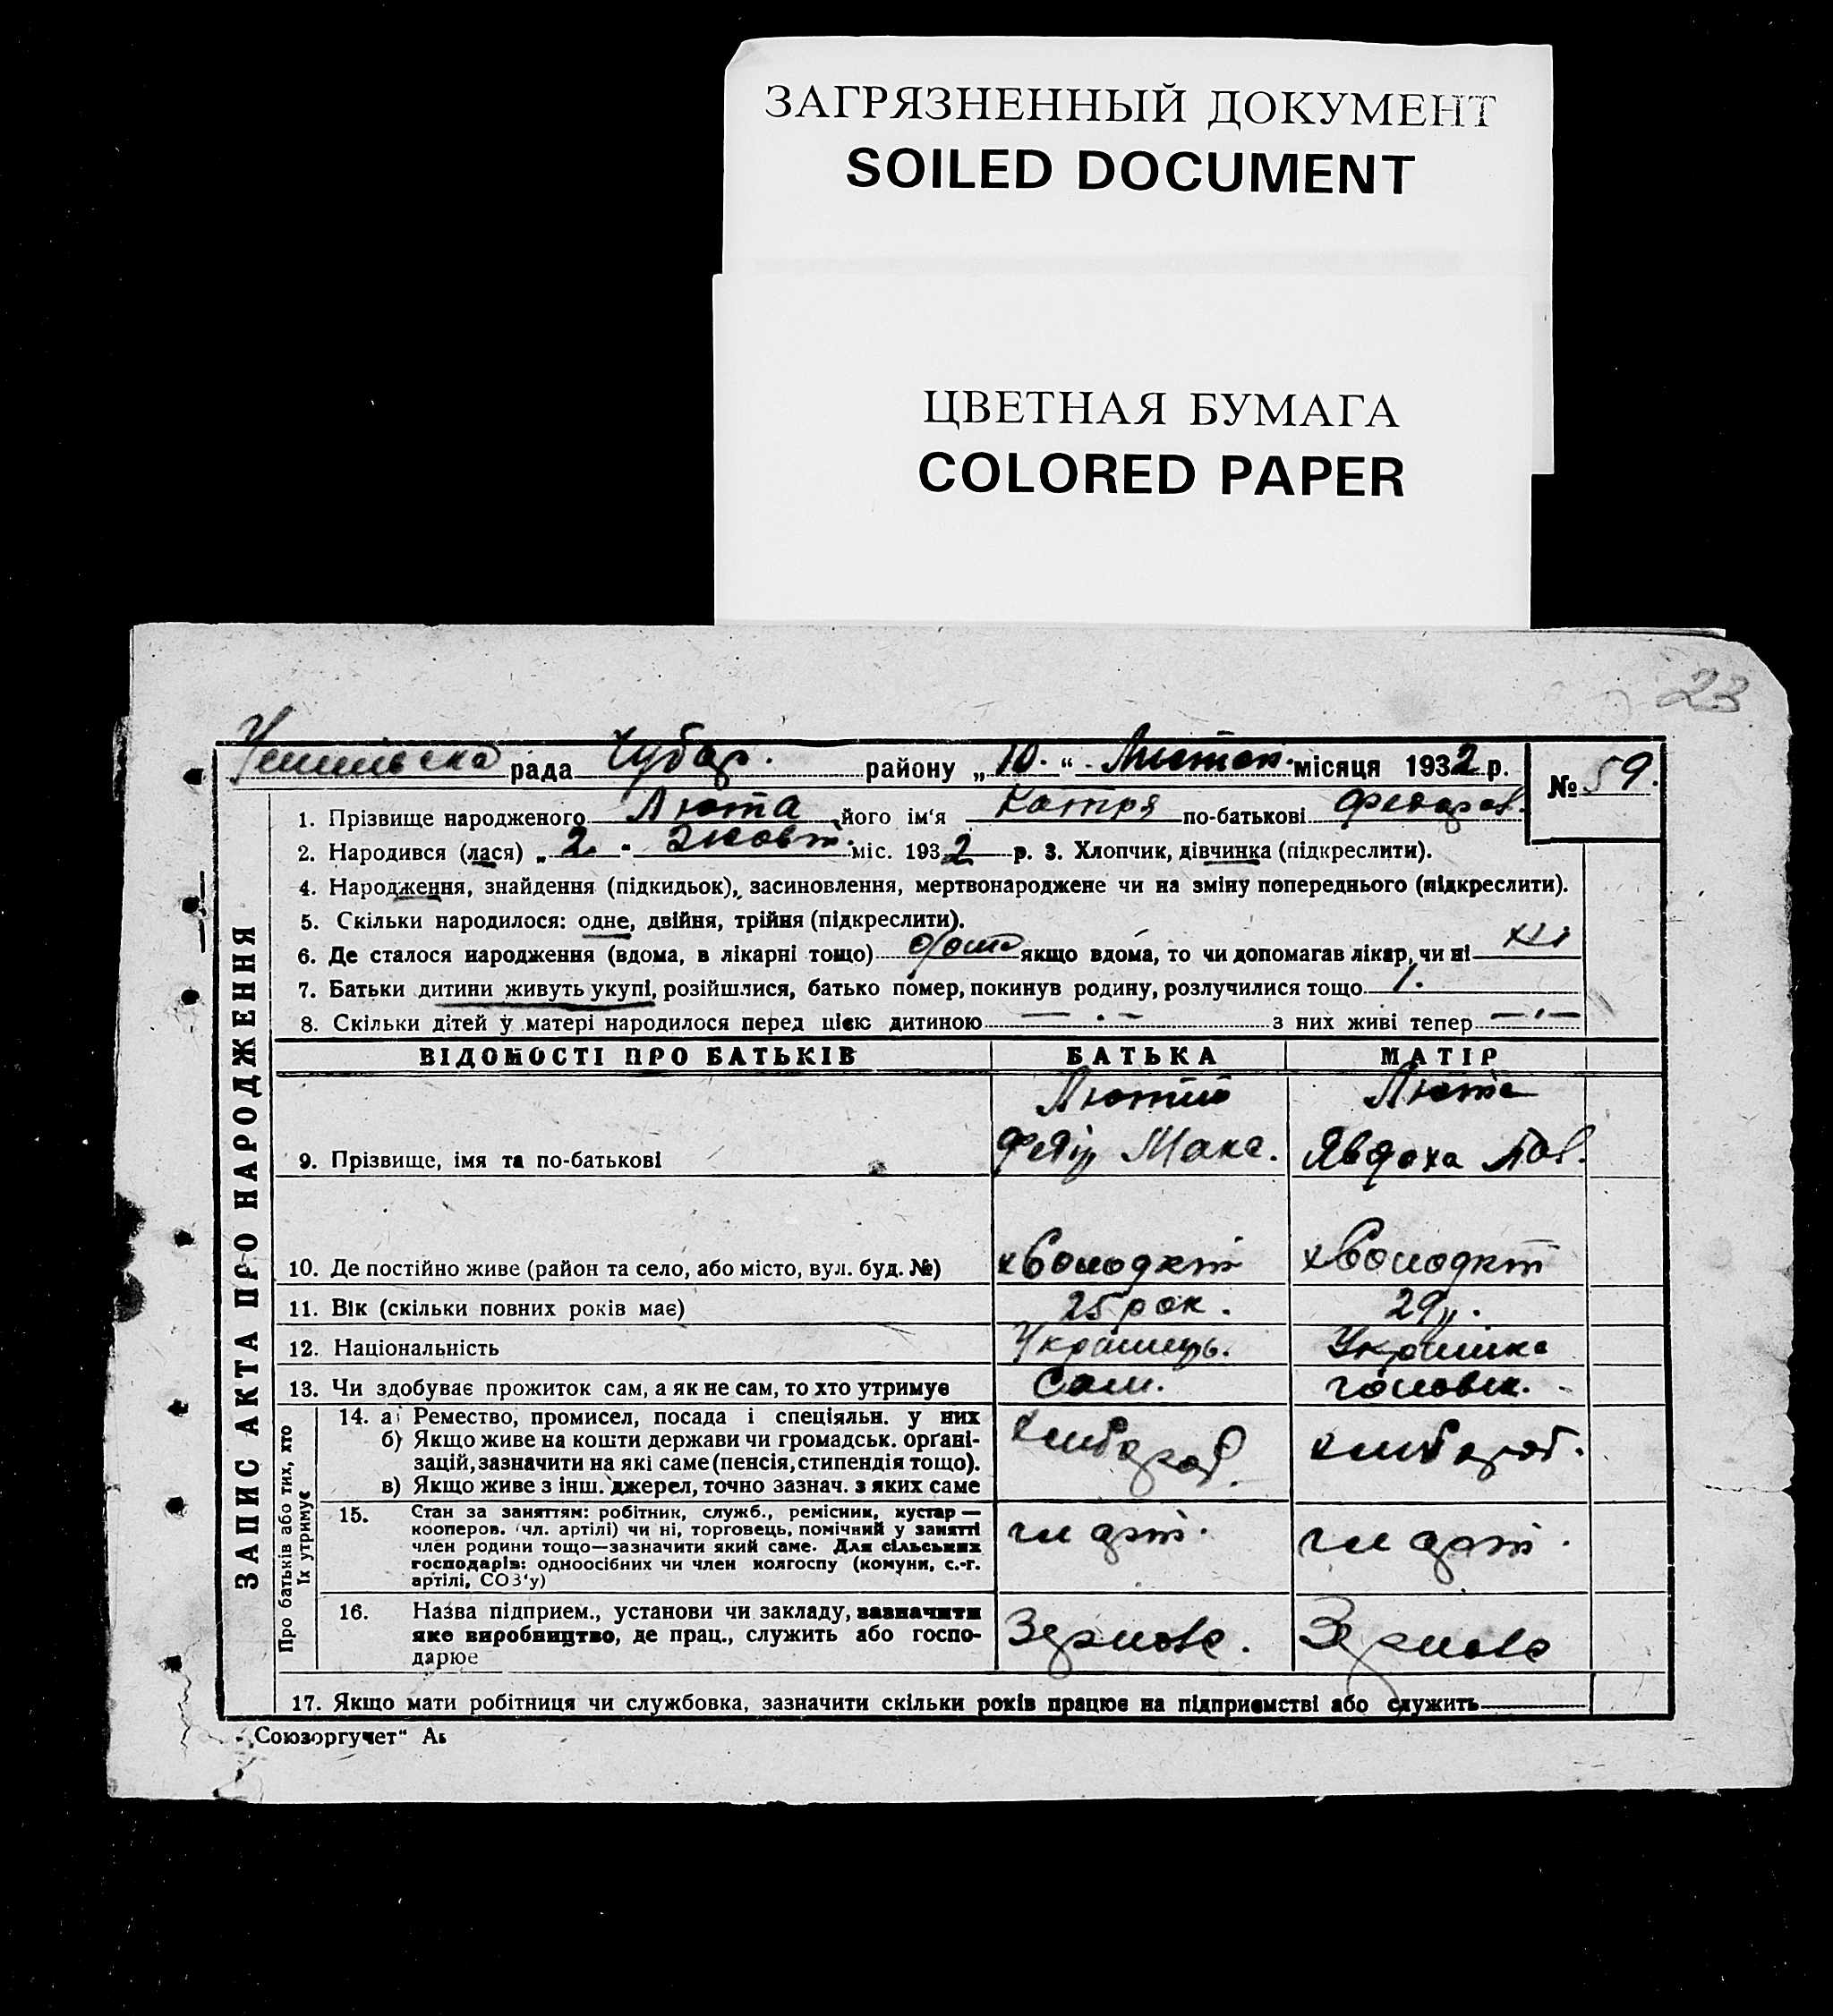 ЗАГРЯЗНЕННЫЙ ДОКУМЕНТ
SOILED DOCUMENT
ЦВЕТНАЯ БУМАГА
COLORED PAPER
23
рада Чубар. району „10.“ Листоп. місяця 1932 р. № 59.
ЗАПИС АКТА ПРО НАРОДЖЕННЯ
1. Прізвище народженого Люта його ім'я Катря по-батькові Федоров.
2. Народився (лася) „2" Жовт. міс. 1932 р. 3. Хлопчик, дівчинка (підкреслити).
4. Народження, знайдення (підкидьок), засиновлення, мертвонароджене чи на зміну попереднього (підкреслити).
5. Скільки народилося: одне, двійня, трійня (підкреслити).
6. Де сталося народження (вдома, в лікарні тощо) якщо вдома, то чи допомагав лікар, чи ні
7. Батьки дитини живуть укупі, розійшлися, батько помер, покинув родину, розлучилися тощо 1.
8. Скільки дітей у матері народилося перед цією дитиною — . — з них живі тепер — . —
ВІДОМОСТІ ПРО БАТЬКІВ БАТЬКА МАТІР
Лютий Люта
9. Прізвище, імя та по-батькові Федір Макс. Явдоха Пав.
10. Де постійно живе (район та село, або місто, вул. буд. №)
11. Вік (скільки повних років має) 25 рок. 29 „.
12. Національність Українець. Українка
13. Чи здобуває прожиток сам, а як не сам, то хто утримує Сам. чоловік.
Про батьків або тих, хто їх утримує
14. а) Ремество, промисел, посада і спеціяльн. у них хлібороб. хлібороб.
б) Якщо живе на кошти держави чи громадськ. органі-
зацій, зазначити на які саме (пенсія, стипендія тощо).
в) Якщо живе з інш. джерел, точно зазнач. з яких саме
15. Стан за заняттям: робітник, служб., ремісник, кустар —
кооперов. (чл. артілі) чи ні, торговець, помічний у занятті
член родини тощо—зазначити який саме. Для сільських
господарів: одноосібних чи член колгоспу (комуни, с.-г.
артілі, СОЗ'у)
чл арт. чл арт.
16. Назва підприєм., установи чи закладу, зазначити
яке виробництво, де прац., служить або госпо-
дарює
Зернове. Зернове
17. Якщо мати робітниця чи службовка, зазначити скільки років працює на підприємстві або служить
„Союзоргучет"